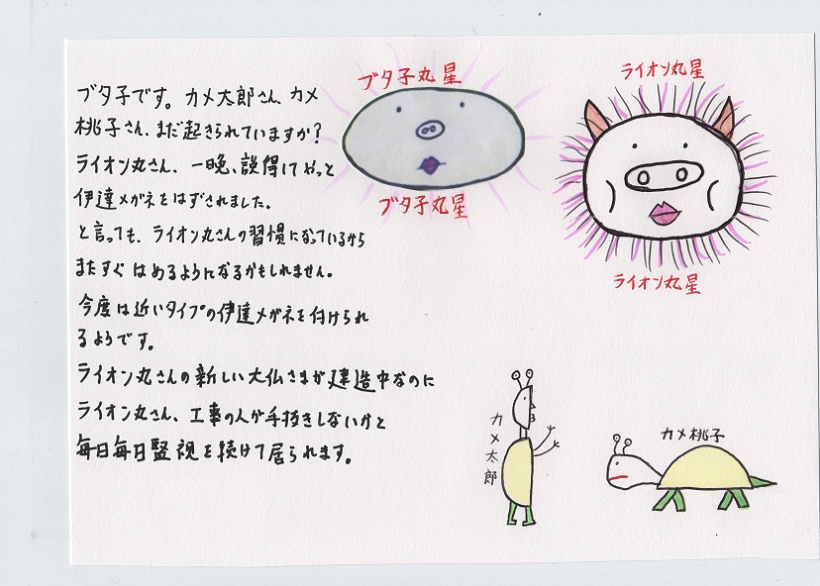 ブタ子です。カメ太郎さん カメ
桃子さん、まだ起きられていますか?
ライオン丸さん、一晩、説得してやっと
伊達メガネをはずされました。
と言っても、ライオン丸さんの習慣になっているから
またすぐ はめるようになるかもしれません。
今度は近いタイプの伊達メガネを付けられ
るようです。
ライオン丸さんの新しい大仏さまが建造中なのに
ライオン丸さん、工事の人が手抜きしないかと
毎日毎日監視を続けて居られます。
ブタ子丸星
ブタ子丸星
ライオン丸星
ライオン丸星
カメ太郎
カメ桃子